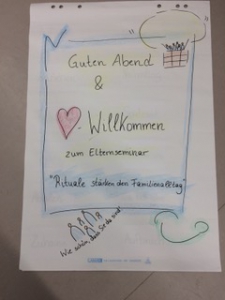 Guten Abend
&
- Willkommen
zum Elternseminar
"Rituale stärken den Familienalltag"
Wie schön, dass Sie da sind!